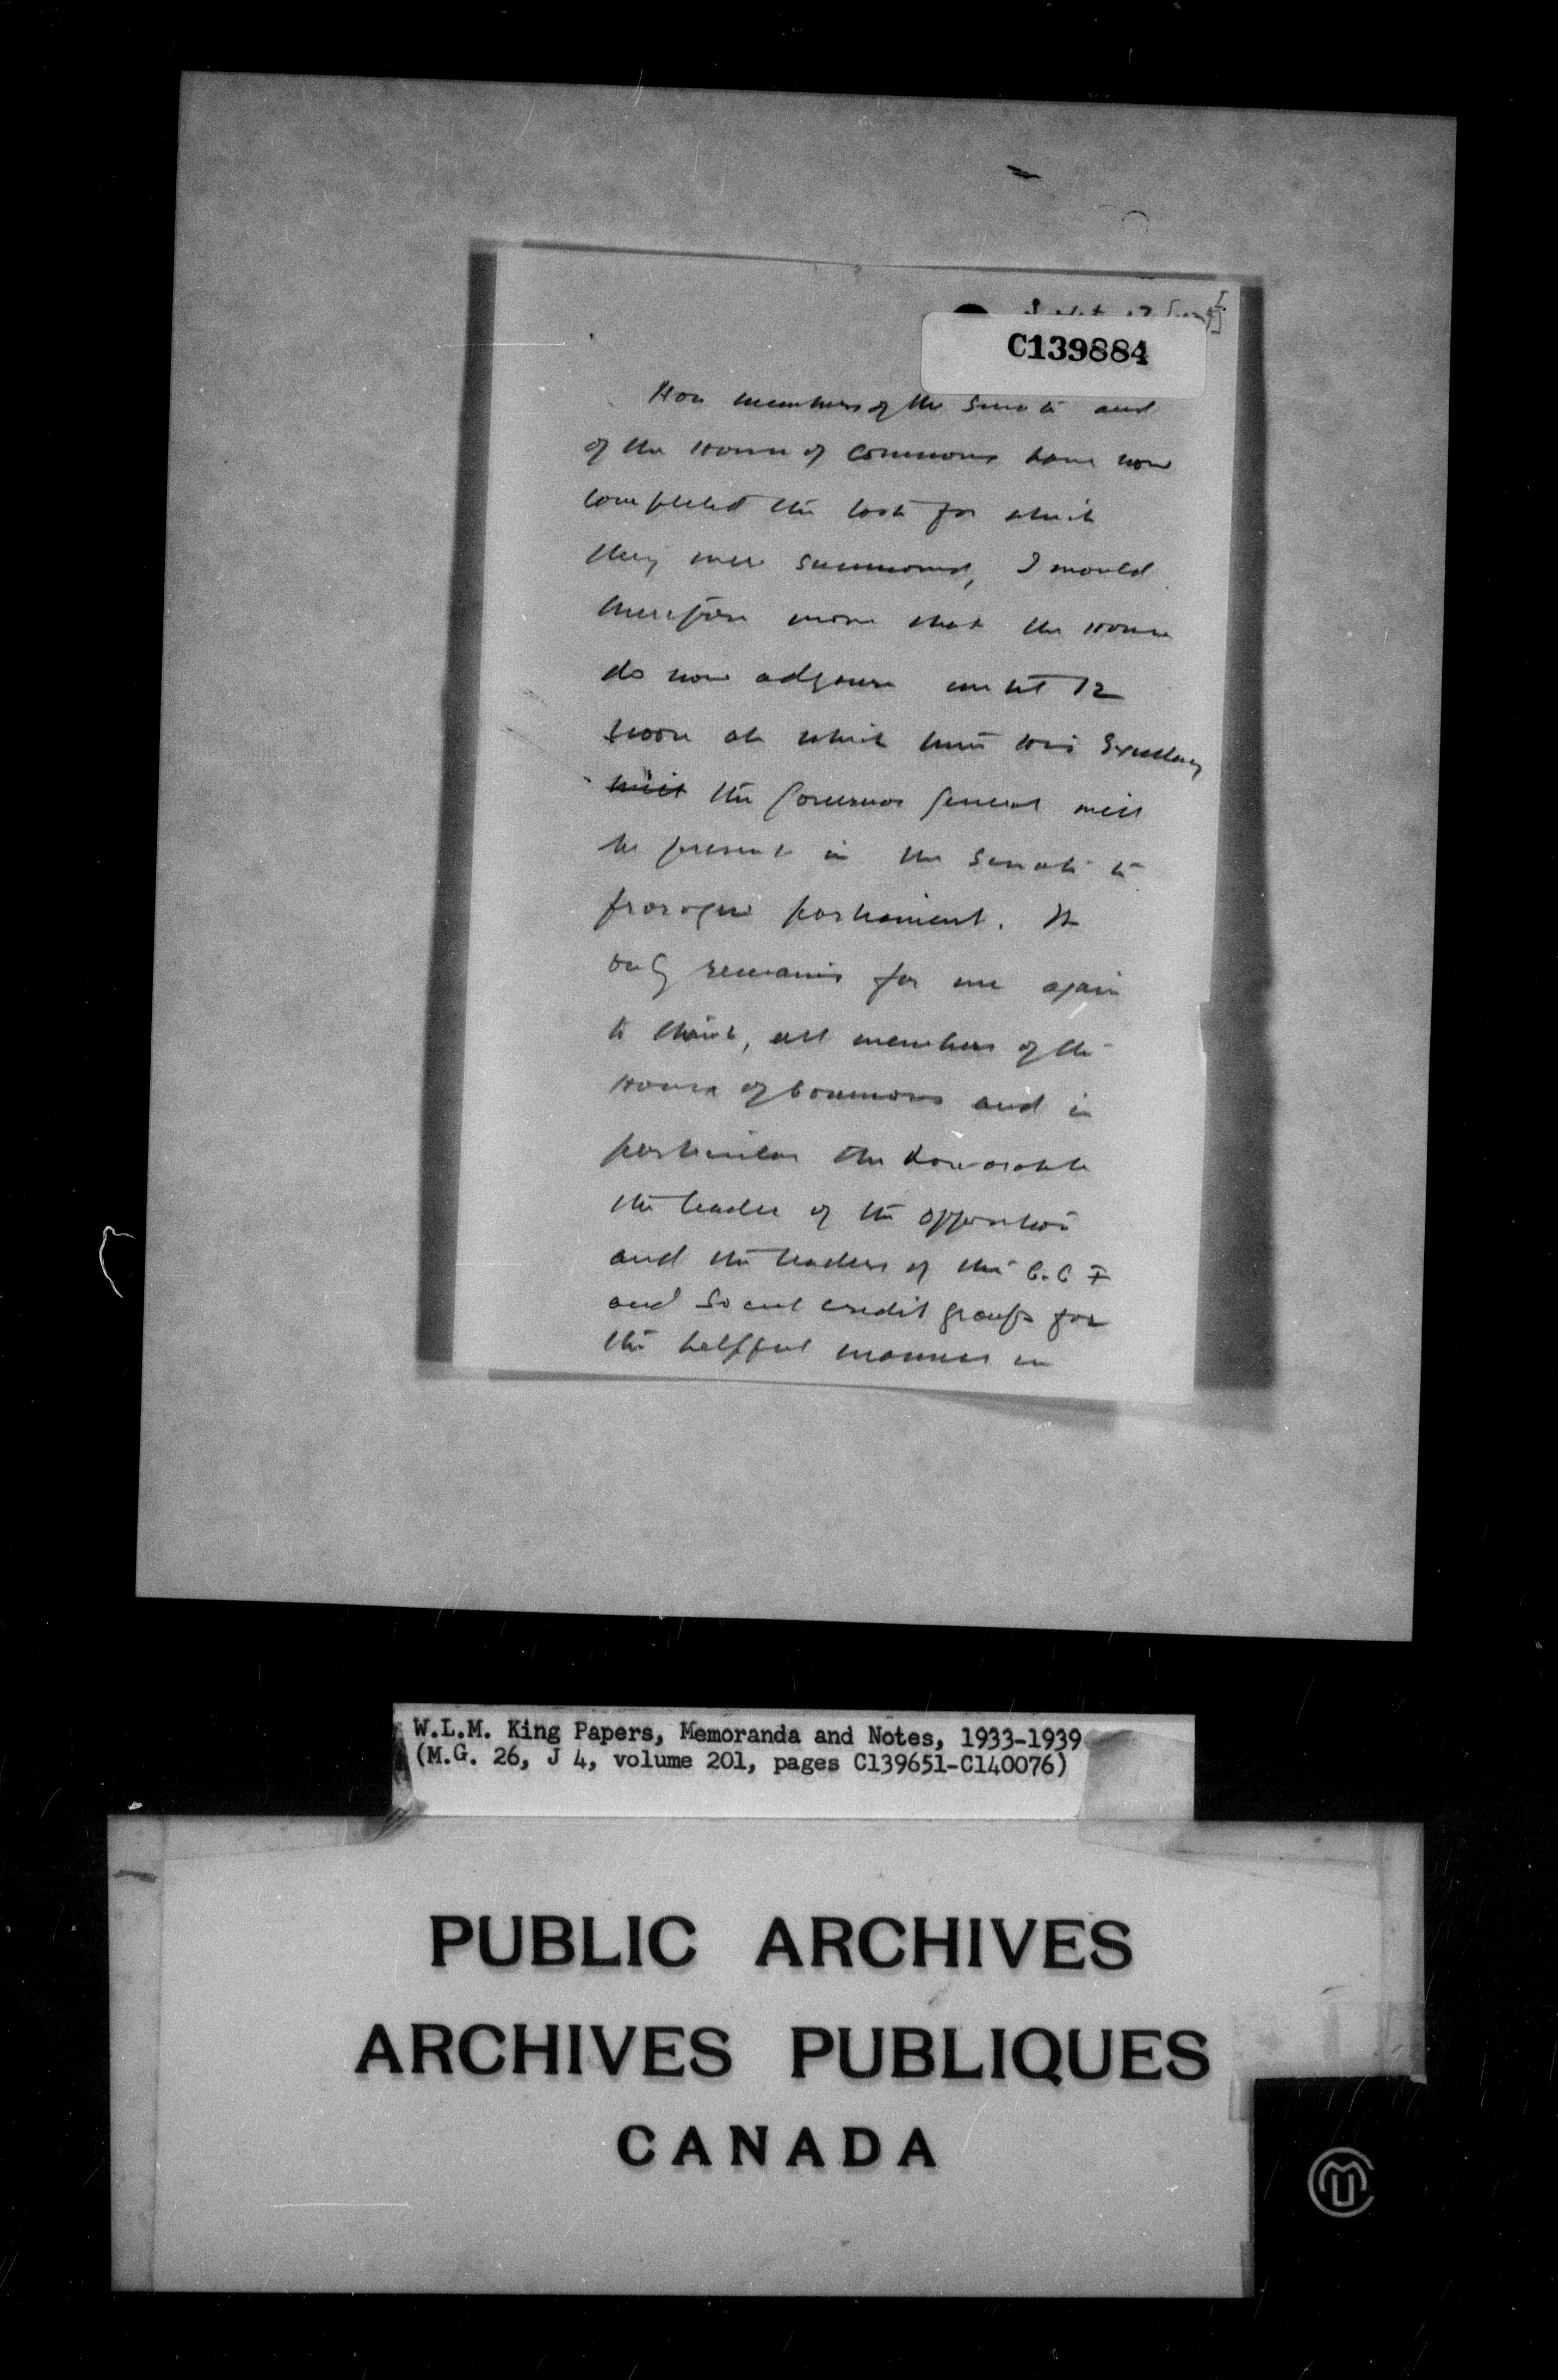 C139884
Hon members of the Senate and
of the House of Commons have now
completed the task for which
they were summoned, I would
therefore move that the House
do now adjourn until 12
noon at which time His Excellency
the Governor General will
be present in the Senate to
prorogue parliament. It
only remains for me again
to thank, all members of the
House of Commons and in
particular the honorable
the leader of the opposition
and the leaders of the C.C F
and Social credit groups for
the helpful manner in
W.L.M. King Papers, Memoranda and Notes, 1933-1939
(M.G. 26, J 4, volume 201, pages C139651-C140076)
PUBLIC ARCHIVES
ARCHIVES PUBLIQUES
CANADA